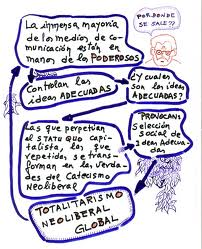 La inmensa mayoría
de los medios de co-
municación están en
manos de los PODEROSOS
¿POR DONDE
SE SALE??
Controlan las
ideas ADECUADAS
¿Y cuáles
son las ideas
ADECUADAS??
Las que perpetúan
el STATU QUO capi-
talista, las que
repetidas se trans-
forman en las verda-
des del Catecismo
Neoliberal
PROVOCANDO
Selección
social de
Ideas Adecua-
das
TOTALITARISMO
NEOLIBERAL
GLOBAL